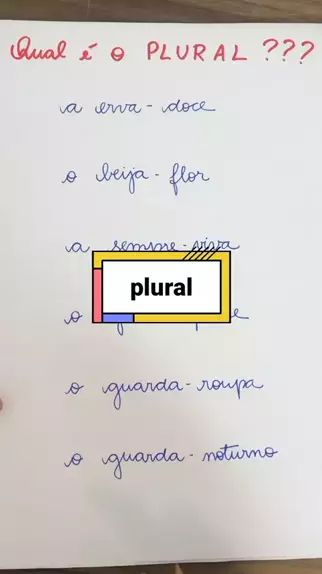 Qual é o PLURAL ???
a erva-doce
o beija-flor
a sempre-viva
plural
o
o guarda-roupa
o guarda-noturno